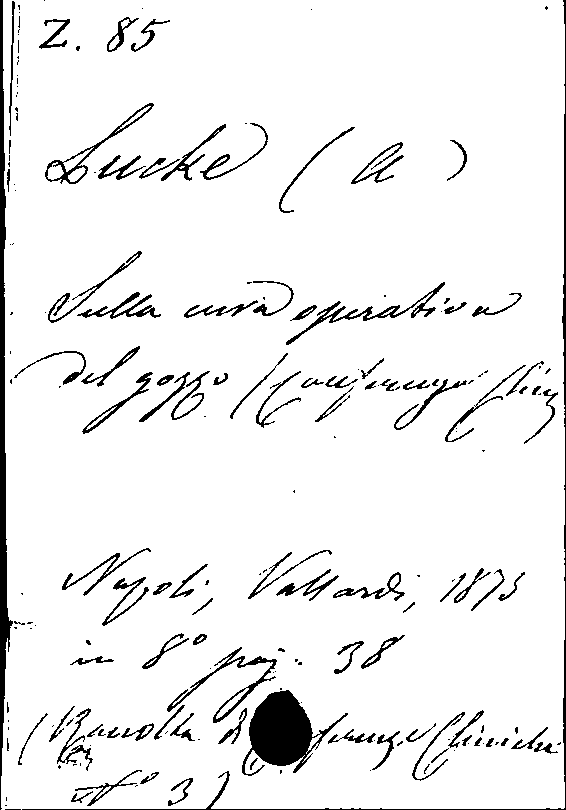 Z. 85
Lucke (A)
Sulla cura operativa
del gozzo (Conferenza Clin
Napoli, Vallardi, 1873
in 8° pag. 38
(Raccolta di Conferenze Cliniche
N° 3)